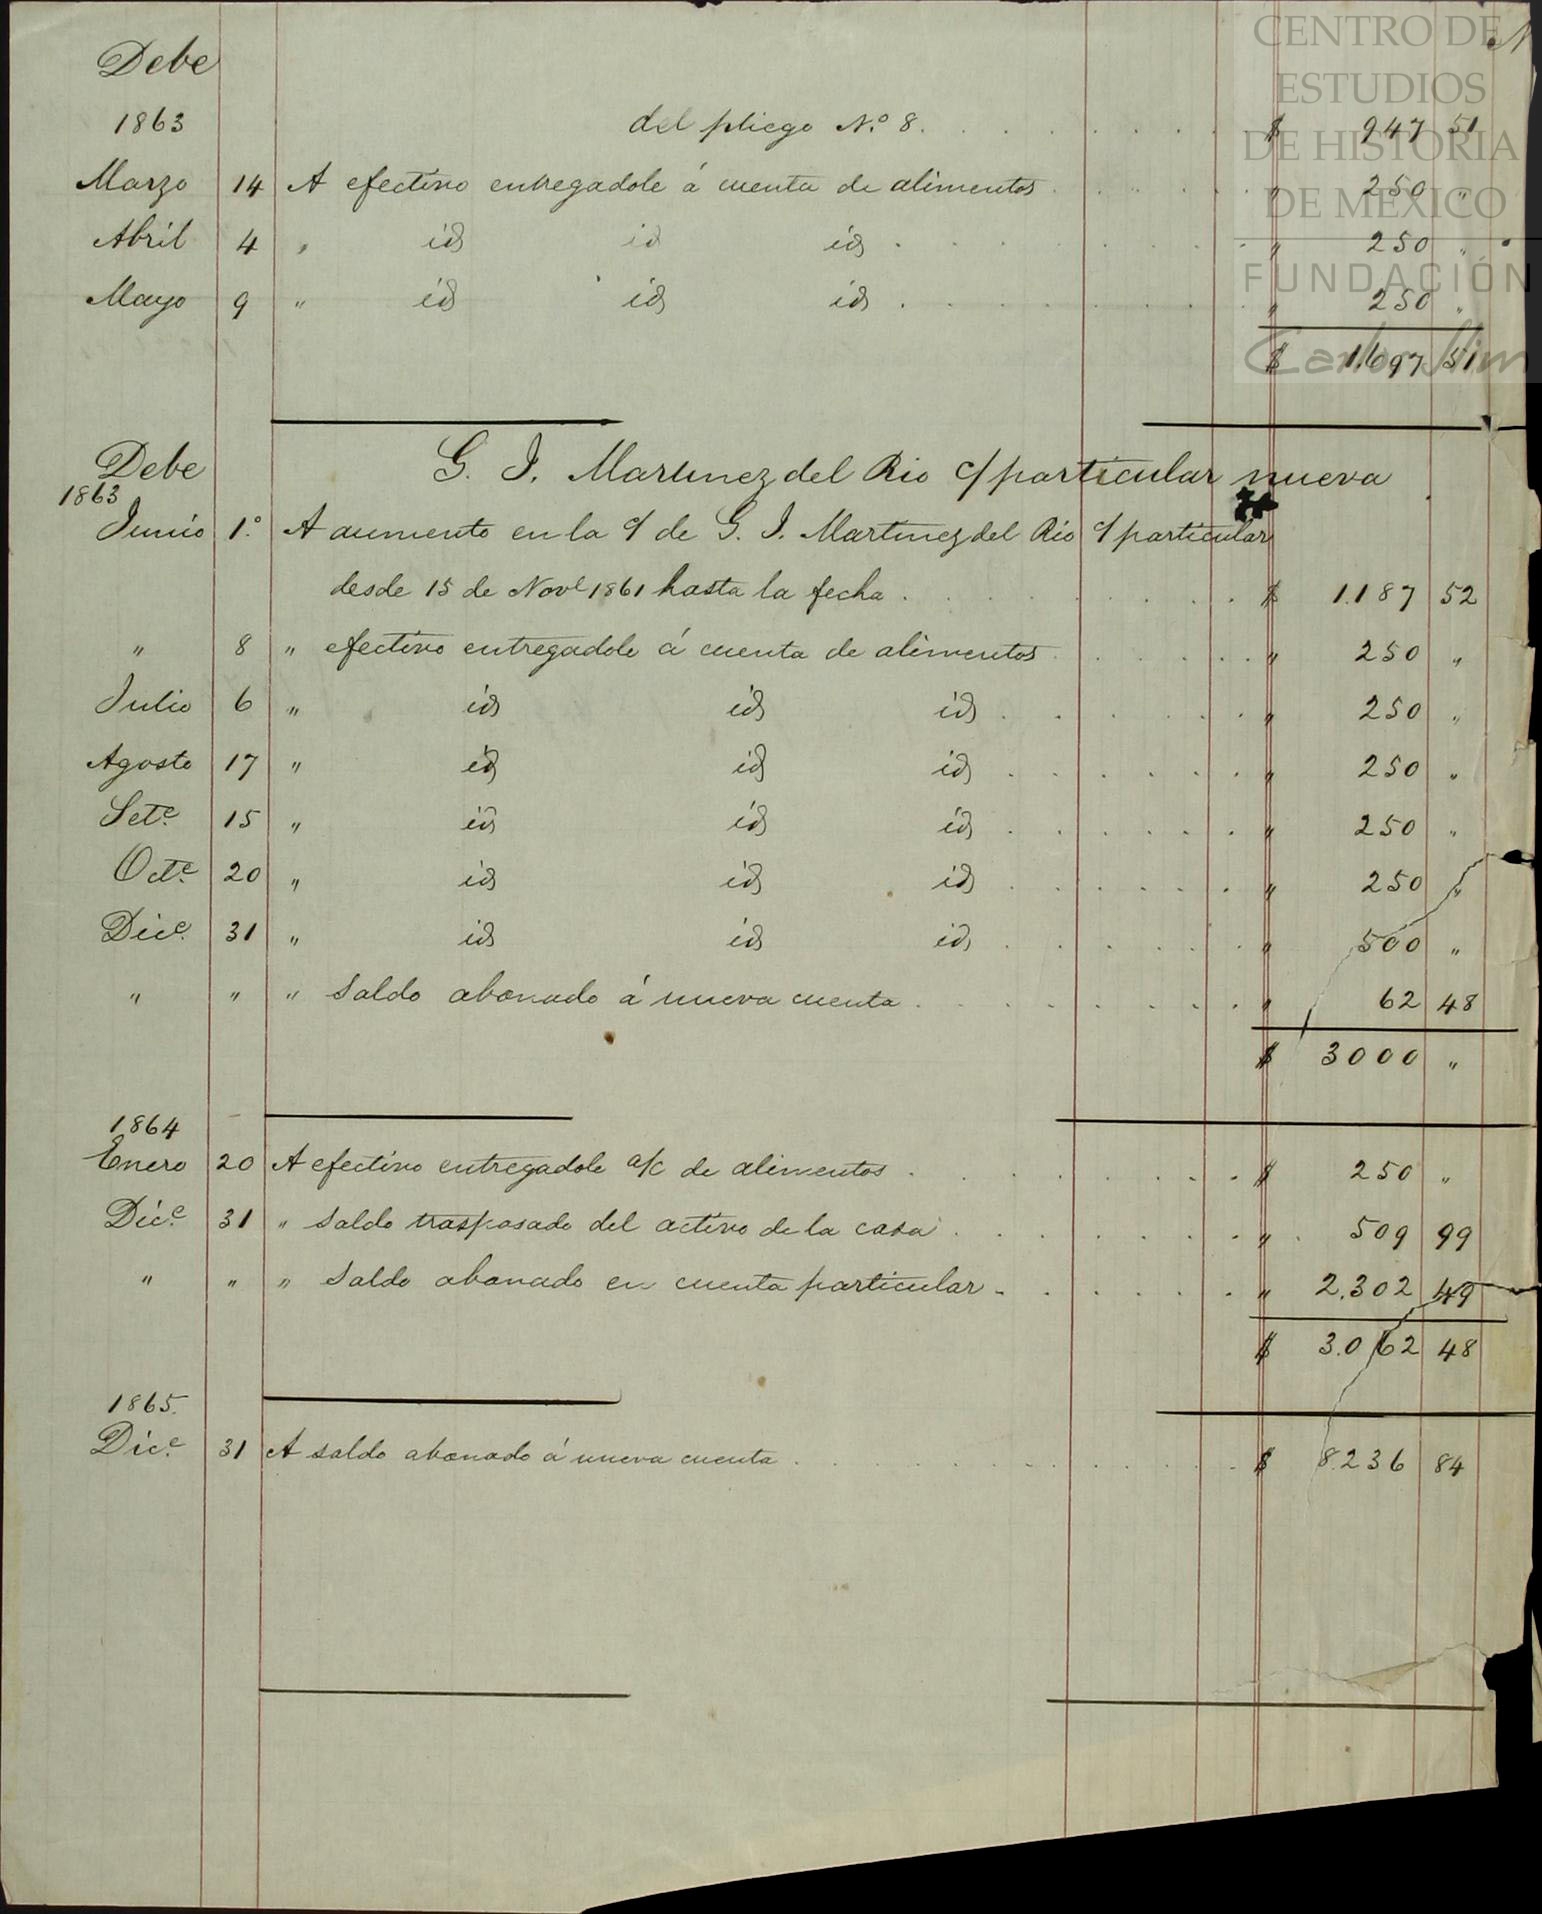 CENTRO DE
ESTUDIOS
DE HISTORIA
DE MEXICO
FUNDACIÓN
Carlos Slim
Debe
1863 del pliego N.º 8 $ 947 51
Marzo 14 A efectivo entregadole á cuenta de alimentos " 250 "
Abril 4 " id id id " 250 "
Mayo 9 " id id id " 250 "
$ 1,697 51
Debe G. I. Martinez del Rio c/ particular nueva
1863
Junio 1.º A aumento en la c/ de G. I. Martinez del Rio c/ particular
desde 15 de Nove 1861 hasta la fecha $ 1.187 52
" 8 " efectivo entregadole á cuenta de alimentos " 250 "
Julio 6 " id id id " 250 "
Agosto 17 " id id id " 250 "
Sete. 15 " id id id " 250 "
Octe. 20 " id id id " 250 "
Dice. 31 " id id id " 500 "
" " " Saldo abonado á nueva cuenta " 62 48
$ 3000 "
1864
Enero 20 A efectivo entregadole a/c de alimentos $ 250 "
Dice. 31 " Saldo traspasado del activo de la casa " 509 99
" " " Saldo abonado en cuenta particular " 2.302 49
$ 3.062 48
1865.
Dice. 31 A saldo abonado á nueva cuenta $ 8.236 84